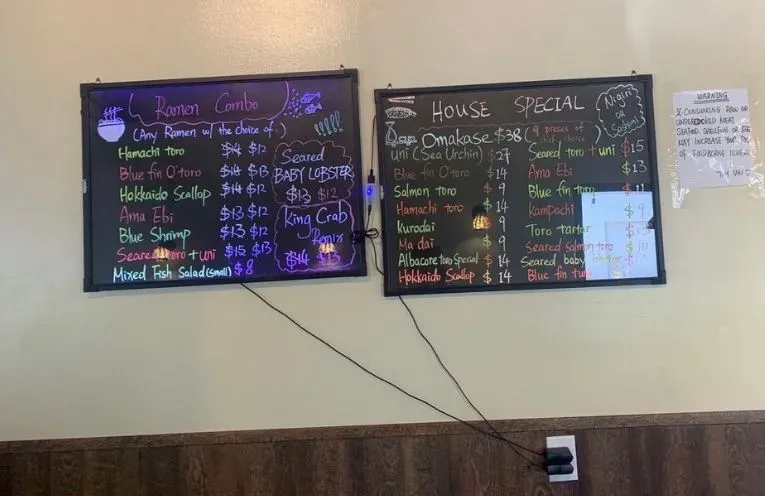 Ramen Combo
(Any Ramen w/ the choice of.)
Hamachi toro $14 $12
Blue fin O'toro $14 $13
Hokkaido Scallop $14 $12
Ama Ebi $13 $12
Blue Shrimp $13 $12
Seared toro + uni $15 $13
Mixed Fish Salad (small) $8
Seared
BABY LOBSTER
$13 $12
King Crab
Remix
$14 $13
HOUSE SPECIAL
Nigiri
OR
Sashimi
Omakase $38 (9 pieces of
chef choice)
Uni (Sea Urchin) $27
Blue fin O'toro $14
Salmon toro $9
Hamachi toro $14
Kurodai $9
Ma dai $9
Albacore toro Special $14
Hokkaido Scallop $14
Seared toro + uni $15
Ama Ebi $13
Blue fin toro 11
Kampachi 9
Toro tartar
Seared Salmon toro
Seared baby
Blue fin tuna
WARNING
CONSUMING RAW OR
UNDERCOOKED MEAT
SEAFOOD, SHELLFISH, OR EGG
MAY INCREASE YOUR RISK
OF FOODBORNE ILLNESS